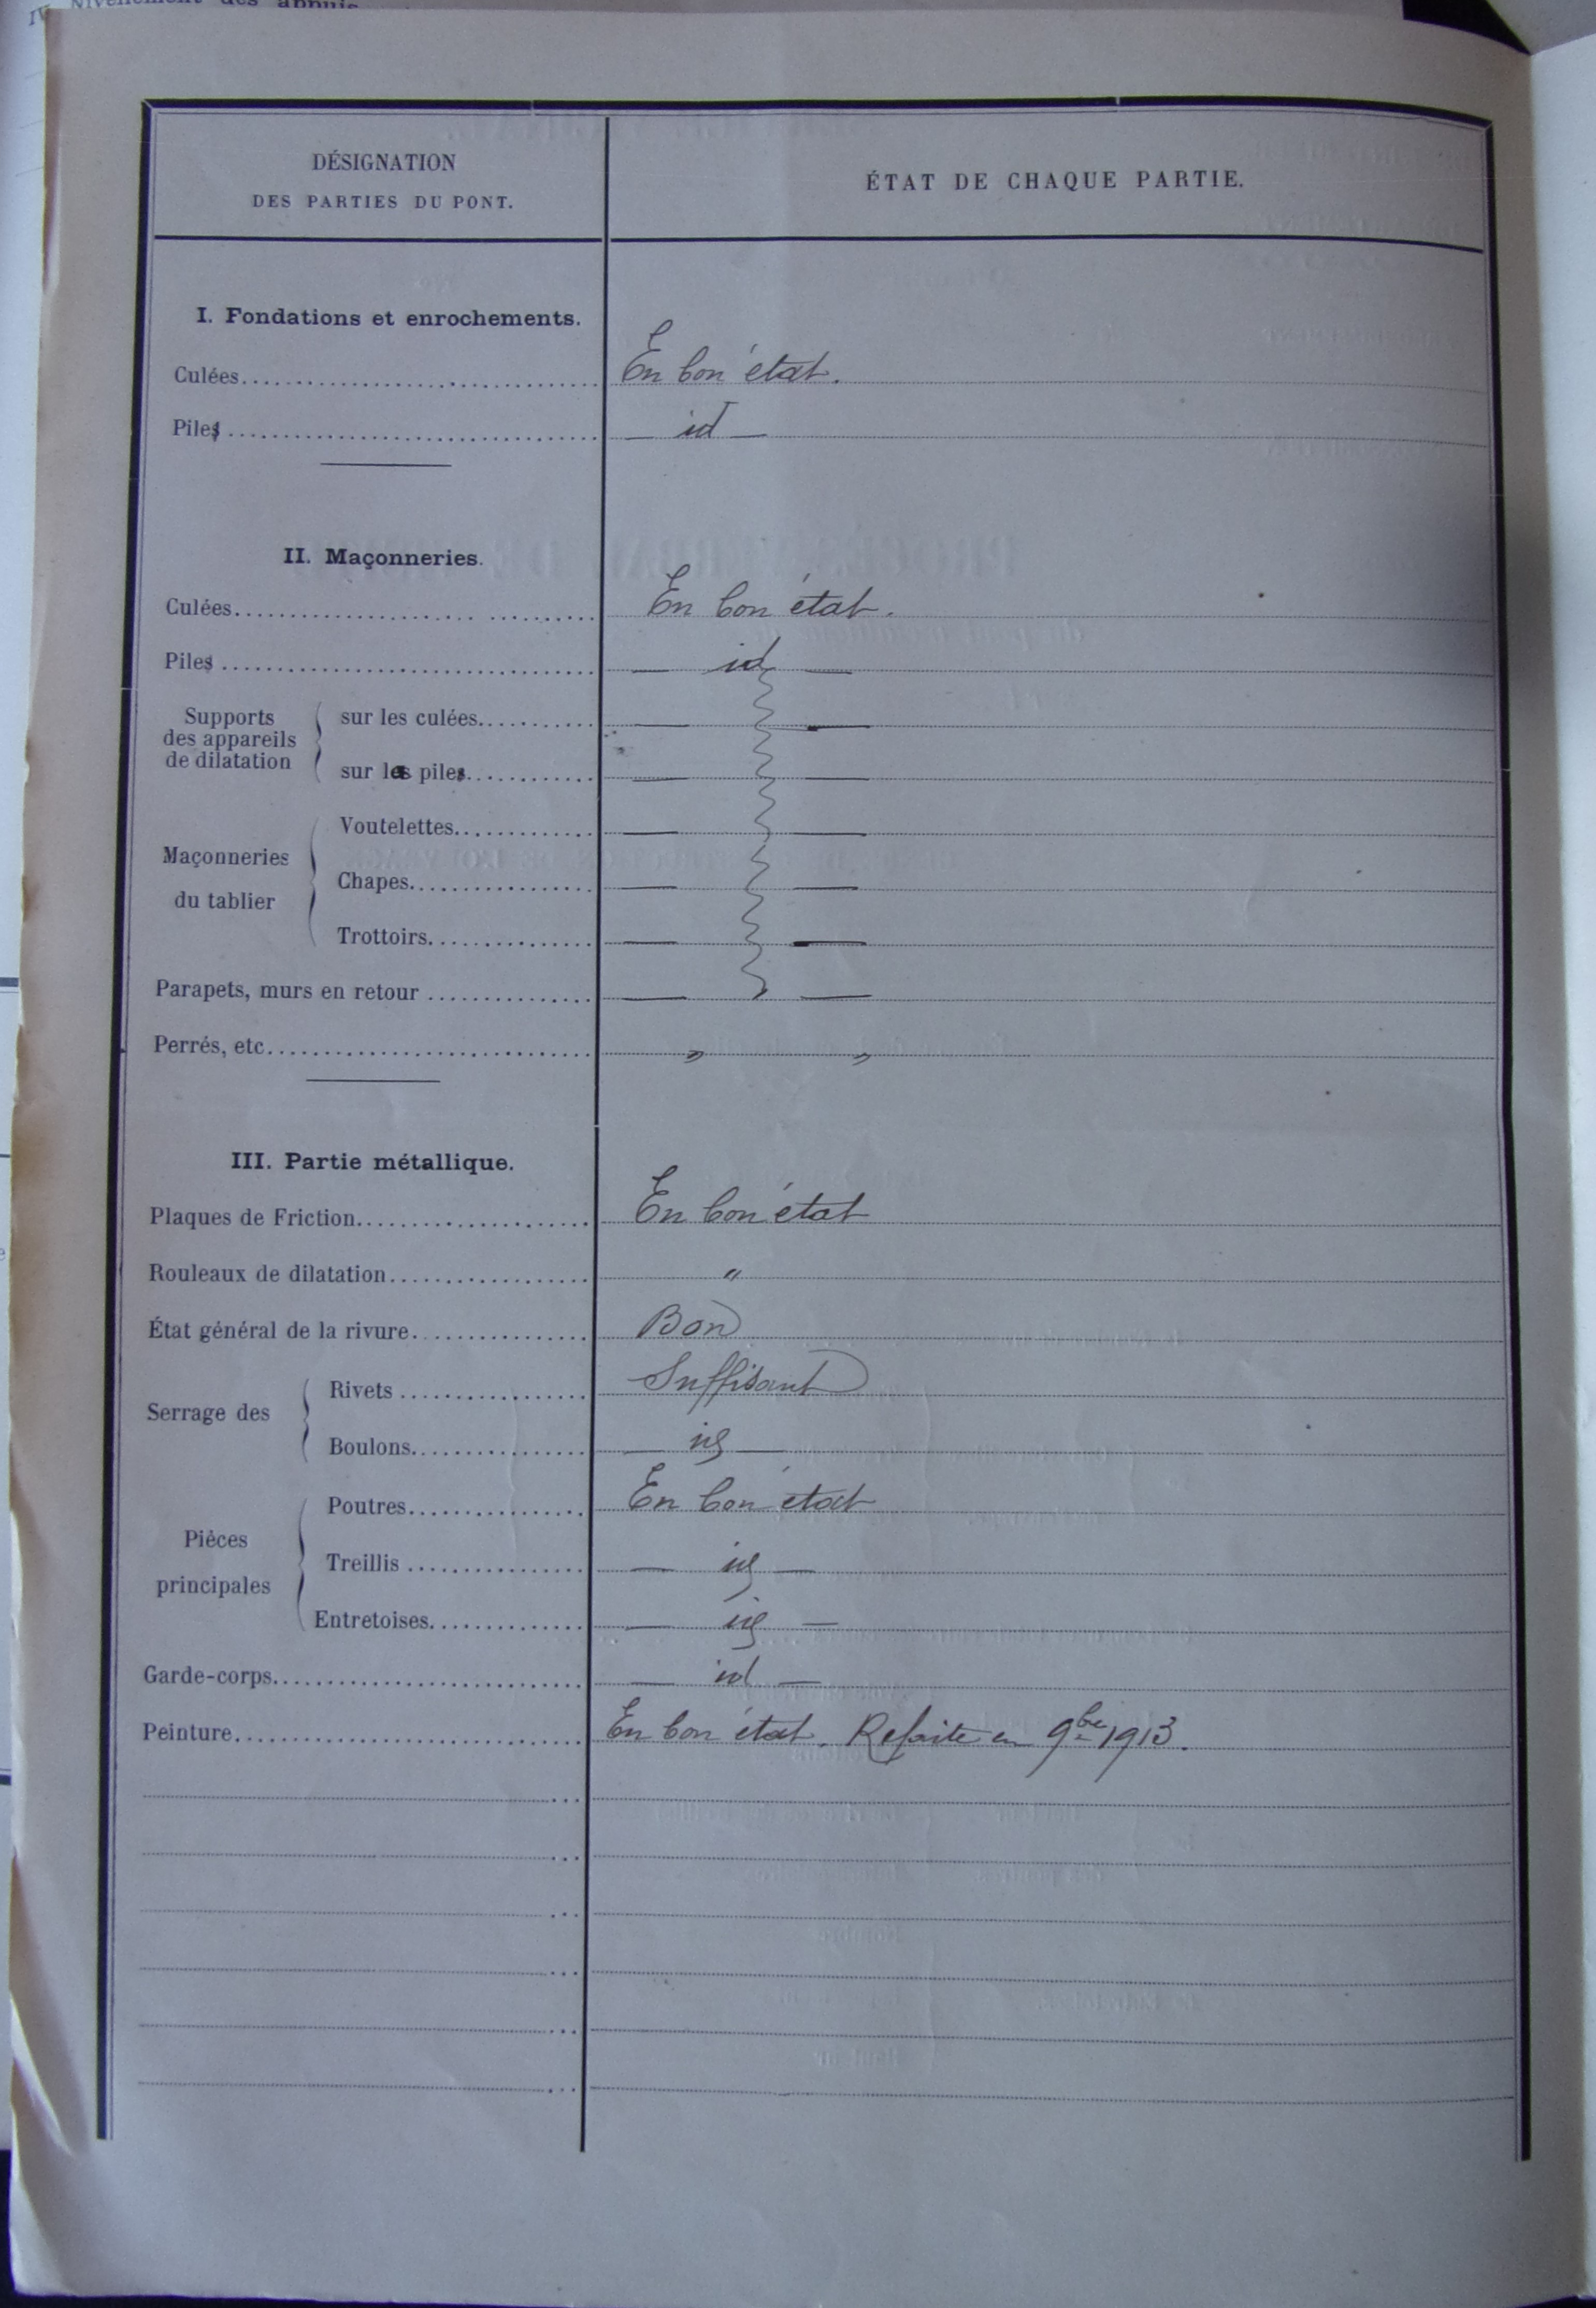 IV. Nivellement des appuis
DÉSIGNATION
DES PARTIES DU PONT.
ÉTAT DE CHAQUE PARTIE.
I. Fondations et enrochements.
Culées En bon état.
Piles — id —
II. Maçonneries.
Culées En bon état.
Piles — id —
Supports des appareils de dilatation
sur les culées — —
sur les piles — —
Maçonneries du tablier
Voutelettes — —
Chapes — —
Trottoirs — —
Parapets, murs en retour — —
Perrés, etc. " "
III. Partie métallique.
Plaques de Friction En bon état
Rouleaux de dilatation "
État général de la rivure Bon
Serrage des
Rivets Suffisant
Boulons — id —
Pièces principales
Poutres En bon état
Treillis — id —
Entretoises — id —
Garde-corps — id —
Peinture En bon état. Refaite en 9bre 1913.